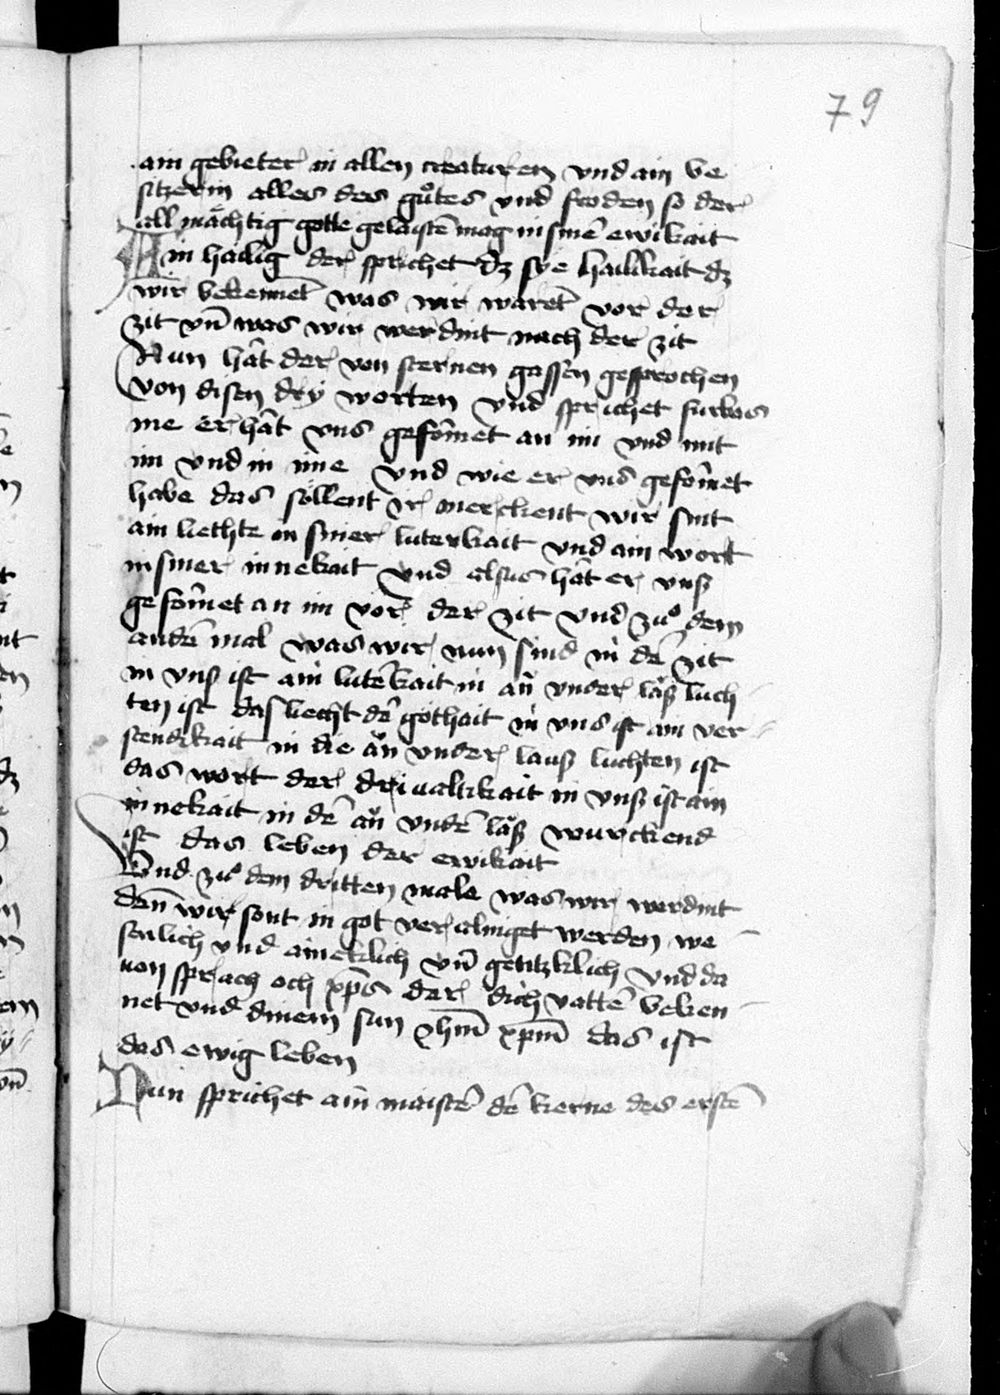 79
ain gebieter in allen creaturen vnd ain be
sitzerin alles des gůtes vnd froden so der
all mächtig gotte gelaystē mag in sinē ewikait
Ain hailig der sprichet dz sye hailikait dz
wir bekennet was wir waret vor der
zit vn̄ was wir werdint nach der zit
Nun hât der von sternen gassen gesprochen
von disen dry worten vnd sprichet furbas
me er hât vns gefôrmet an im vnd mit
im vnd in ime vnd wie er vns gefôrmet
habe das söllent ir merckent wir sint
ain liechte in siner luterkait vnd ain wort
in siner innekait vnd alsus hât er vnß
gefôrmet an im vor der zit vnd zuͦ dem
andē mal was wir nun sind in dē zit
in vnß ist ain lutē kait in ân vnder lâß luch
ten ist das liecht dē gothait in vns ist ain ver
stendikait in die ân vnder lauß luchten ist
das wort der driualtikait in vnß ist ain
innekait in dē ân vndē lâß wurckend
ist das leben der ewikait
Vnd zuͦ dem dritten male was wir werdint
den̄ wir sont in got verainget werden we
senlich vnd aineklich vn̄ gentzklich vnd da
uon sprach och xp̄s der dich vattē beken
net vnd dinem sun Jhm̄ xpm̄ das ist
das ewig leben
Nun sprichet ain maistē dē kerne des erstē